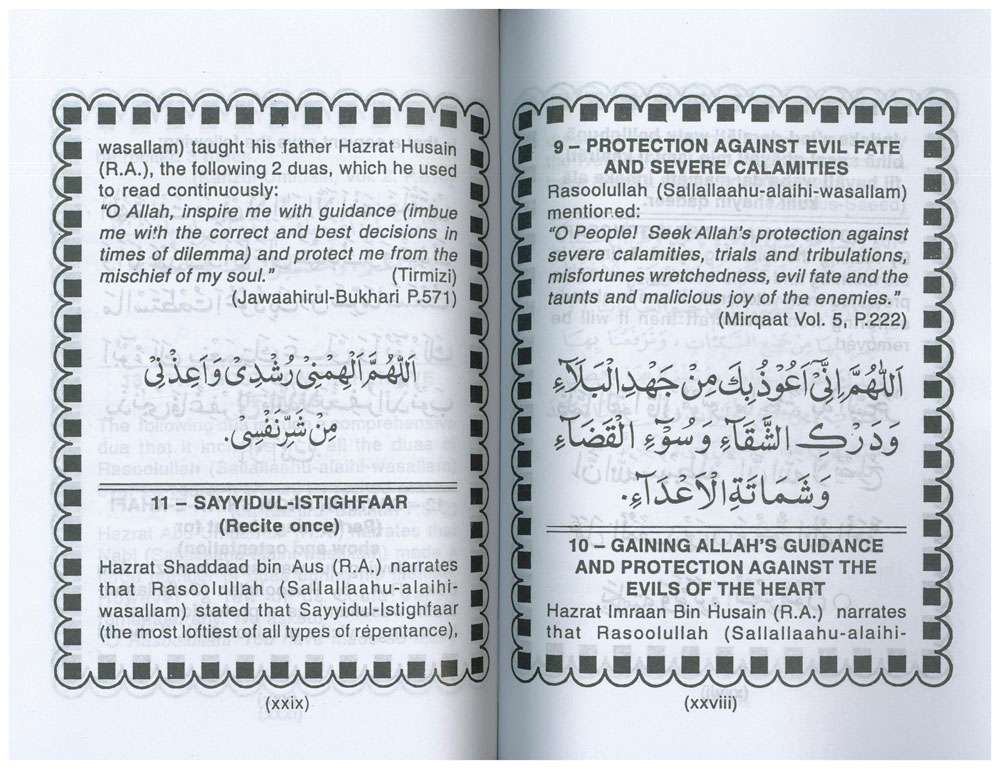 9 – PROTECTION AGAINST EVIL FATE
AND SEVERE CALAMITIES
Rasoolullah (Sallallaahu-alaihi-wasallam)
mentioned:
“O People! Seek Allah’s protection against
severe calamities, trials and tribulations,
misfortunes wretchedness, evil fate and the
taunts and malicious joy of the enemies.”
(Mirqaat Vol. 5, P.222)
اَللّٰهُمَّ اِنِّىْ اَعُوْذُ بِكَ مِنْ جَهْدِ الْبَلَآءِ
وَدَرَكِ الشَّقَآءِ وَسُوْءِ الْقَضَآءِ
وَشَمَاتَةِ الْاَعْدَآءِ.
10 – GAINING ALLAH’S GUIDANCE
AND PROTECTION AGAINST THE
EVILS OF THE HEART
Hazrat Imraan Bin Husain (R.A.) narrates
that Rasoolullah (Sallallaahu-alaihi-
(xxviii)
wasallam) taught his father Hazrat Husain
(R.A.), the following 2 duas, which he used
to read continuously:
“O Allah, inspire me with guidance (imbue
me with the correct and best decisions in
times of dilemma) and protect me from the
mischief of my soul.” (Tirmizi)
(Jawaahirul-Bukhari P.571)
اَللّٰهُمَّ اَلْهِمْنِىْ رُشْدِىْ وَاَعِذْنِىْ
مِنْ شَرِّ نَفْسِىْ.
11 – SAYYIDUL-ISTIGHFAAR
(Recite once)
Hazrat Shaddaad bin Aus (R.A.) narrates
that Rasoolullah (Sallallaahu-alaihi-
wasallam) stated that Sayyidul-Istighfaar
(the most loftiest of all types of repentance),
(xxix)